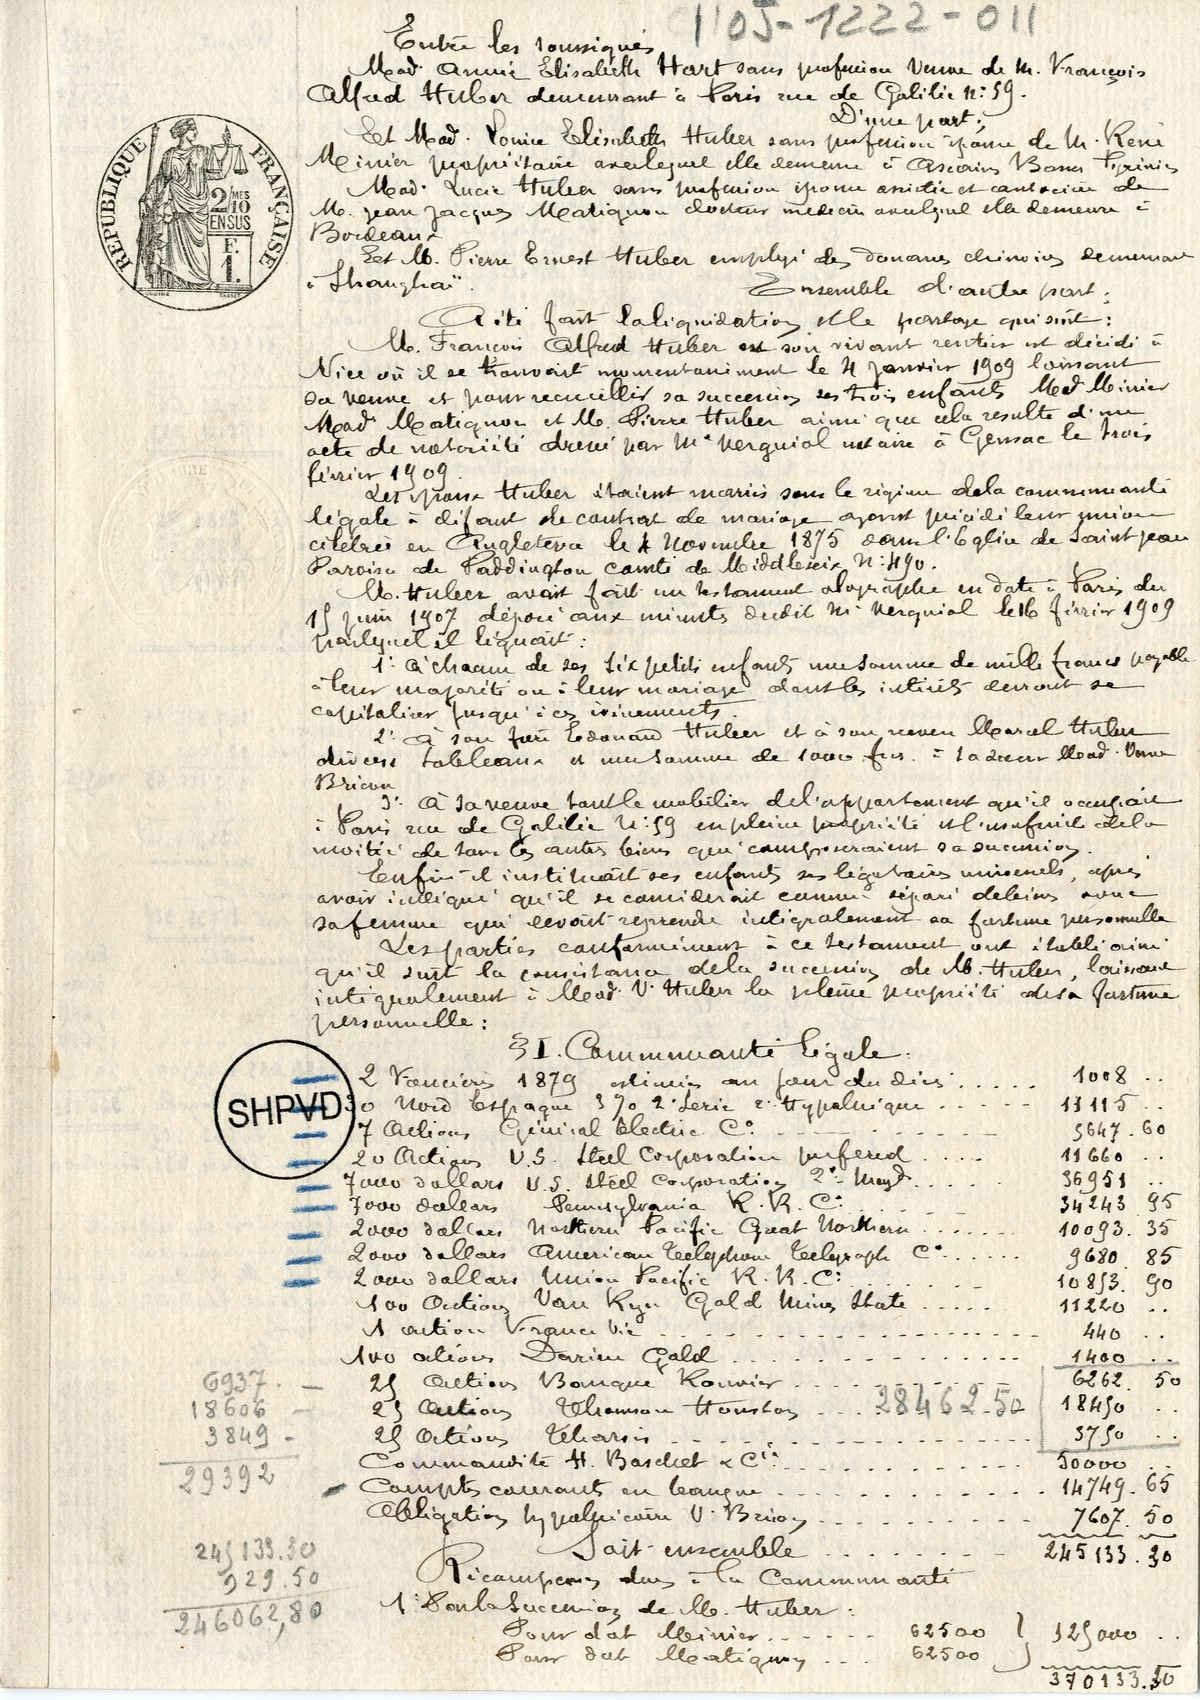 1J05-1222-011
Entre les soussignés
Mad. Annie Elisabeth Hart sans profession veuve de M. François
Alfred Huber demeurant à Paris rue de Galilée N: 59.
D'une part;
Et Mad. Louise Elisabeth Huber sans profession épouse de M. René
Minier propriétaire avec lequel elle demeure à Ascains Basses Pyrénées
Mad. Lucie Huber sans profession épouse assistée et autorisée de
M. Jean Jacques Matignon docteur médecin avec lequel elle demeure à
Bordeaux
Et M. Pierre Ernest Huber employé des douanes chinoises demeurant
à Shanghaï.
Ensemble d'autre part:
A été fait la liquidation et le partage qui suit:
M. François Alfred Huber en son vivant rentier est décédé à
Nice où il se trouvait momentanément le 4 janvier 1909 laissant
sa veuve et pour recueillir sa succession ses trois enfants Mad Minier
Mad. Matignon et M. Pierre Huber ainsi que cela résulte d'un
acte de notoriété dressé par Me Verguiol notaire à Gensac le trois
février 1909.
Les époux Huber étaient mariés sous le régime de la communauté
légale à défaut de contrat de mariage ayant précédé leur union
célébrée en Angleterre le 4 Novembre 1875 dans l'Eglise de Saint Jean
Paroisse de Paddington comté de Middlesex N: 490.
M. Huber avait fait un testament olographe en date à Paris du
15 juin 1907 déposé aux minutes dudit Me Verguiol le 16 février 1909
par lequel il léguait:
1: A chacun de ses six petits enfants une somme de mille francs payable
à leur majorité ou à leur mariage dont les intérêts devront se
capitaliser jusqu'à ces évènements.
2: A son frère Edouard Huber et à son neveu Marcel Huber
divers tableaux et une somme de 1000 frs. à sa sœur Mad. Veuve
Brion
3: A sa veuve tout le mobilier de l'appartement qu'il occupait
à Paris rue de Galilée N: 59 en pleine propriété et l'usufruit de la
moitié de tous les autres biens qui composeraient sa succession.
Enfin il instituait ses enfants ses légataires universels, après
avoir indiqué qu'il se considérait comme séparé de biens avec
sa femme qui devait reprendre intégralement sa fortune personnelle
Les parties conformément à ce testament ont établi ainsi
qu'il suit la consistance de la succession de M. Huber, laissant
intégralement à Mad. V. Huber la pleine propriété de sa fortune
personnelle:
§ I. Communauté légale.
2 Foncières 1879 estimées au jour du décès . . . . . 1008 ..
30 Nord Espagne 3% 2e Serie 2e Hypothèque . . . . . 11115 ..
7 Actions Général Electric Co . . . . . 5647.60
20 Actions U.S. Steel Corporation prefered . . . . 11660 ..
7000 dollars U.S. Steel Corporation 2e Mge . . . . . 36951 ..
7000 dollars Pennsylvania R.R. Co: . . . . 34243 95
2000 dollars Northern Pacific Great Northern . . . . 10093.35
2000 dollars American Telephone Telegraph Co . . . . . 9680.85
2000 dollars Union Pacific R.R. Co: . . . . . 10853.90
100 Actions Van Ryn Gold Mines State . . . . . 11220 ..
1 action France Vie . . . . . 440 ..
100 actions Darien Gold . . . . . 1400 ..
25 Actions Banque Rouvier . . . . . 6262.50
25 Actions Thomson Houston . . . . 28462.50 18450 ..
25 Actions Tharsis . . . . . 3750 ..
Commandite H. Baschet & Cie: . . . . . 50000 ..
Comptes courants en banque . . . . . 14749.65
Obligation hypothécaire V. Brion . . . . . 7607.50
Soit ensemble . . . . . 245133.30
Récompenses dues à la Communauté
1: Par la Succession de M. Huber:
Pour dot Minier . . . . . 62500 } 125000 ..
Pour dot Matignon . . . 62500
370133.30
RÉPUBLIQUE FRANÇAISE
2/10 MES
EN SUS
F.
1.
TASSET
SHPVD
6937. -
18606 -
3849 -
29392
245133.30
929.50
246062,80